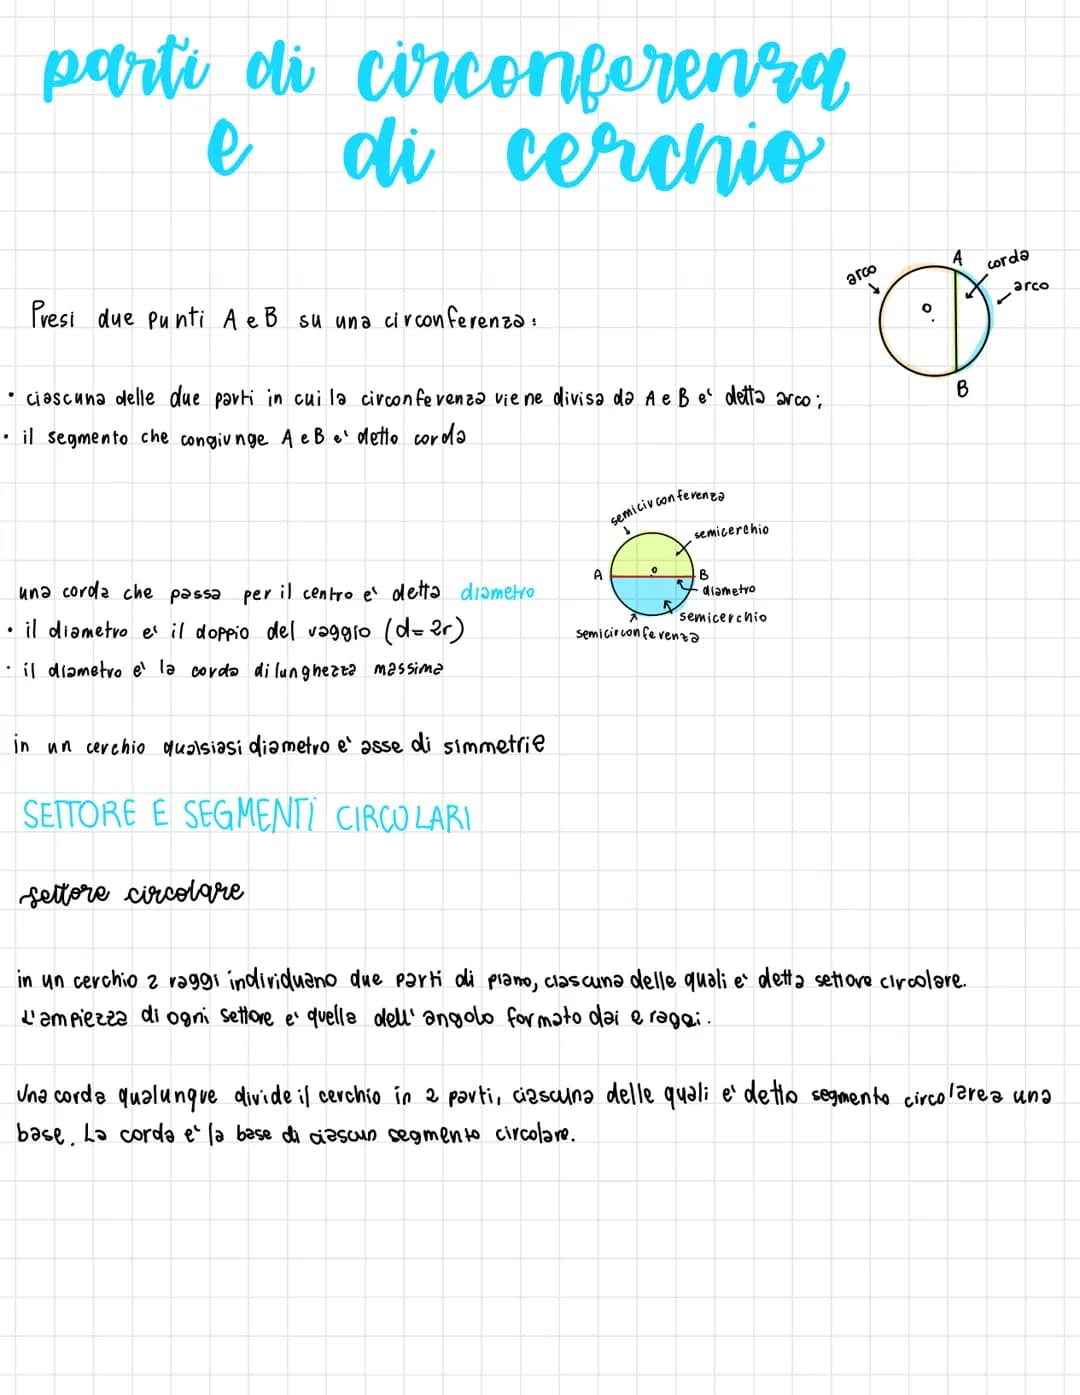 parti di circonferenza
e di cerchio
A
corda
arco
arco
Presi due punti A e B su una circonferenza:
o
B
• ciascuna delle due parti in cui la circonferenza viene divisa da A e B e' detta arco;
• il segmento che congiunge A e B e' detto corda
semicirconferenza
semicerchio
A
o
B
una corda che passa per il centro e' detta diametro
diametro
semicerchio
• il diametro e' il doppio del raggio (d=2r)
semicirconferenza
• il diametro e' la corda di lunghezza massima
in un cerchio qualsiasi diametro e' asse di simmetrie
SETTORE E SEGMENTI CIRCOLARI
settore circolare
in un cerchio 2 raggi individuano due parti di piano, ciascuna delle quali e' detta settore circolare.
L'ampiezza di ogni settore e' quella dell'angolo formato dai 2 raggi.
Una corda qualunque divide il cerchio in 2 parti, ciascuna delle quali e' detto segmento circolare a una
base. La corda e' la base di ciascun segmento circolare.